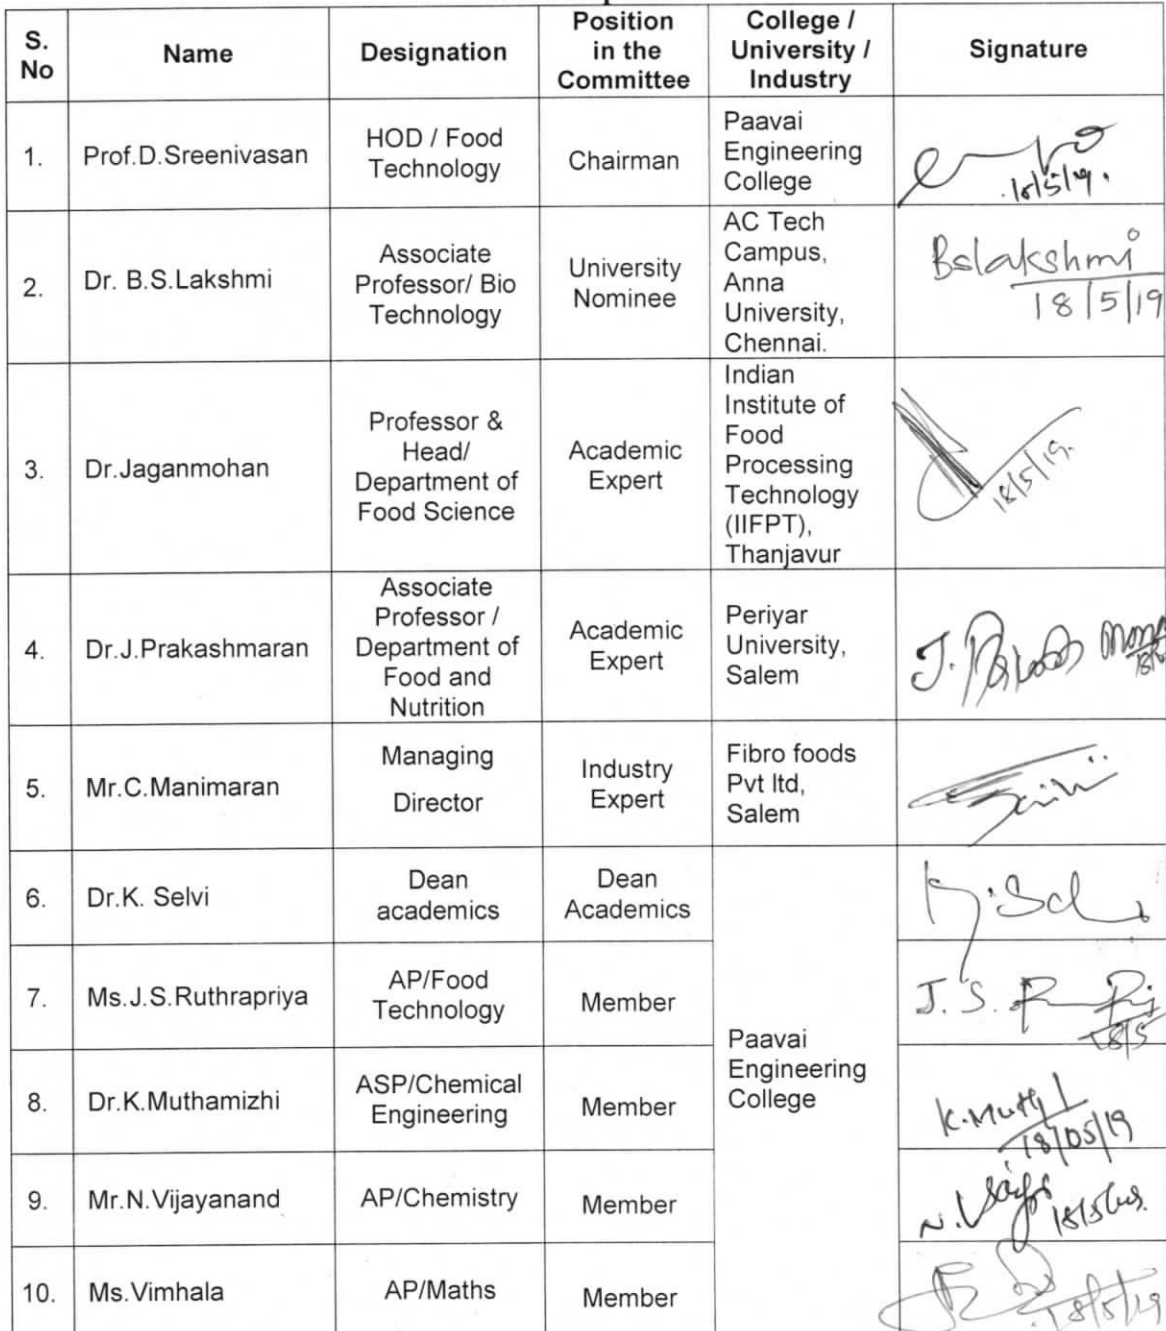 S. No | Name | Designation | Position in the Committee | College / University / Industry | Signature
1. | Prof.D.Sreenivasan | HOD / Food Technology | Chairman | Paavai Engineering College | 18/5/19.
2. | Dr. B.S.Lakshmi | Associate Professor/ Bio Technology | University Nominee | AC Tech Campus, Anna University, Chennai. | Bslakshmi 18/5/19
3. | Dr.Jaganmohan | Professor & Head/ Department of Food Science | Academic Expert | Indian Institute of Food Processing Technology (IIFPT), Thanjavur | 18/5/19.
4. | Dr.J.Prakashmaran | Associate Professor / Department of Food and Nutrition | Academic Expert | Periyar University, Salem | J.
5. | Mr.C.Manimaran | Managing Director | Industry Expert | Fibro foods Pvt ltd, Salem |
6. | Dr.K. Selvi | Dean academics | Dean Academics | Paavai Engineering College |
7. | Ms.J.S.Ruthrapriya | AP/Food Technology | Member | J. S. 18/5
8. | Dr.K.Muthamizhi | ASP/Chemical Engineering | Member | 18/05/19
9. | Mr.N.Vijayanand | AP/Chemistry | Member | N.
10. | Ms.Vimhala | AP/Maths | Member | 18/5/19